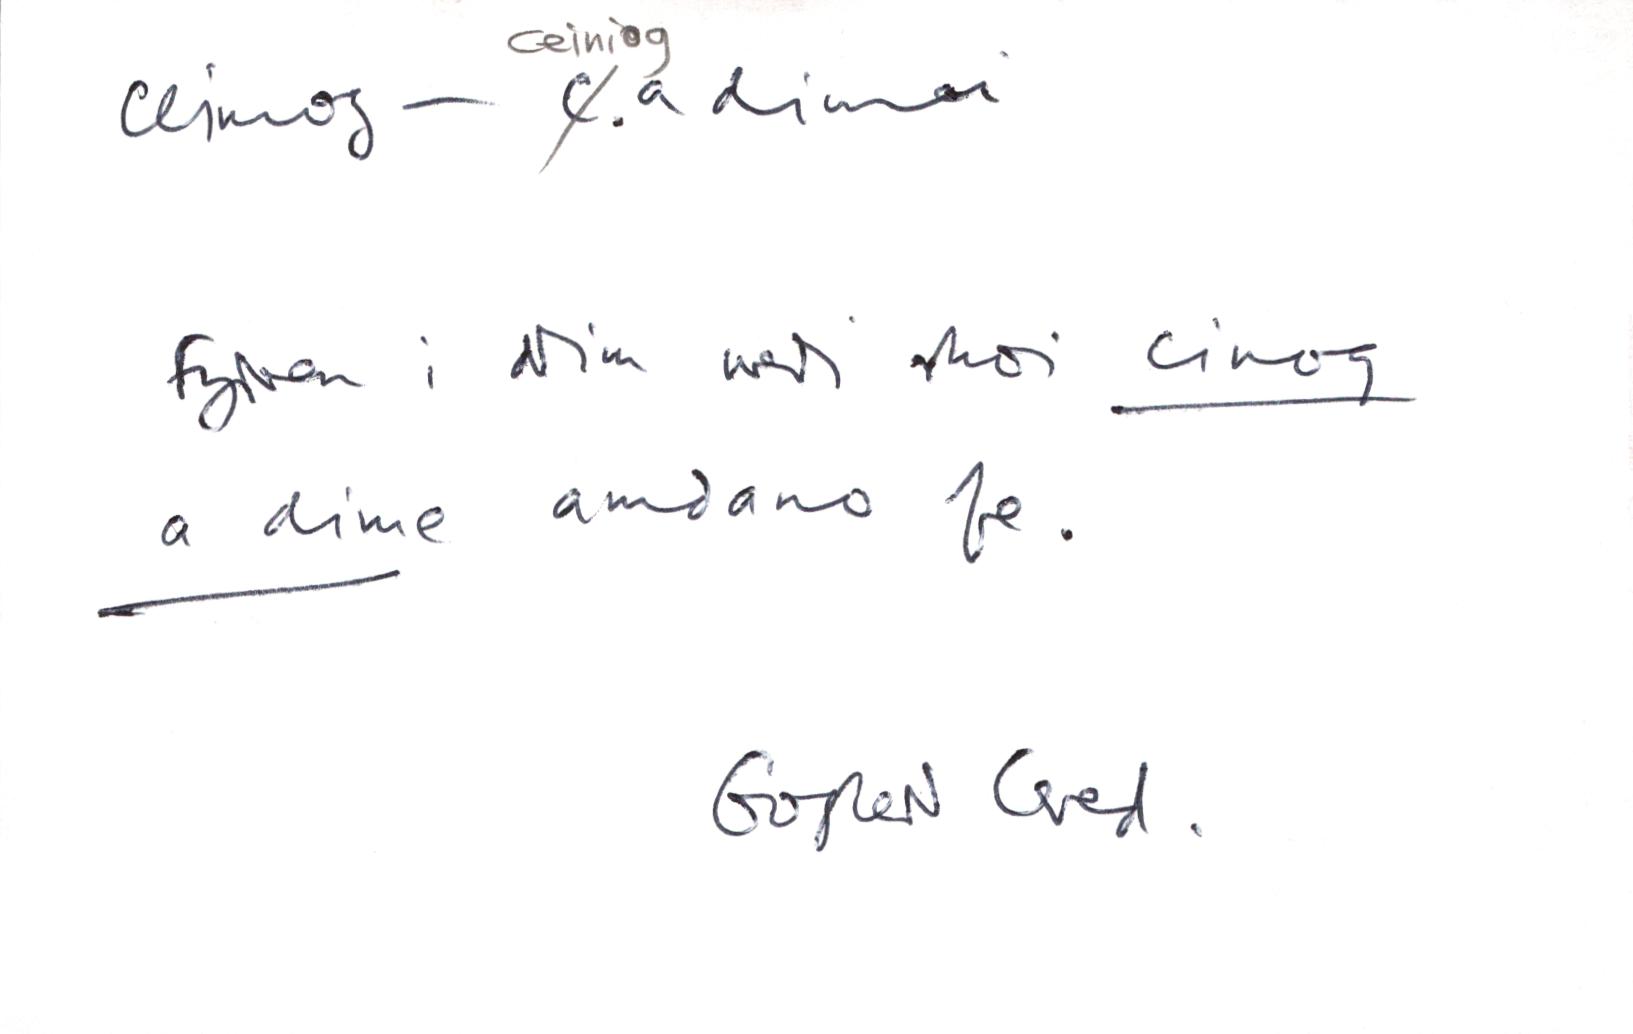 ceiniog
Ceiniog — c. a dimai
fyswn i ddim wedi rhoi cinog
a dime amdano fe.
Gorllewin Cered.